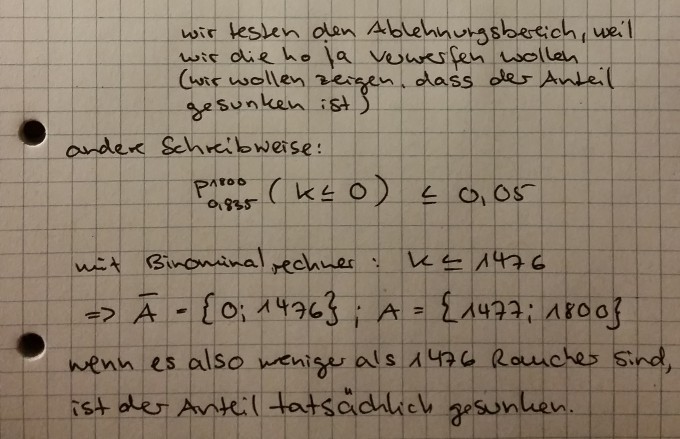 wir testen den Ablehnungsbereich, weil
wir die ho ja verwerfen wollen
(wir wollen zeigen, dass der Anteil
gesunken ist)
andere Schreibweise:
P^1800_0,835 (k ≤ 0) ≤ 0,05
mit Binominalrechner: k ≤ 1476
=> A̅ = {0; 1476}; A = {1477; 1800}
wenn es also weniger als 1476 Raucher sind,
ist der Anteil tatsächlich gesunken.